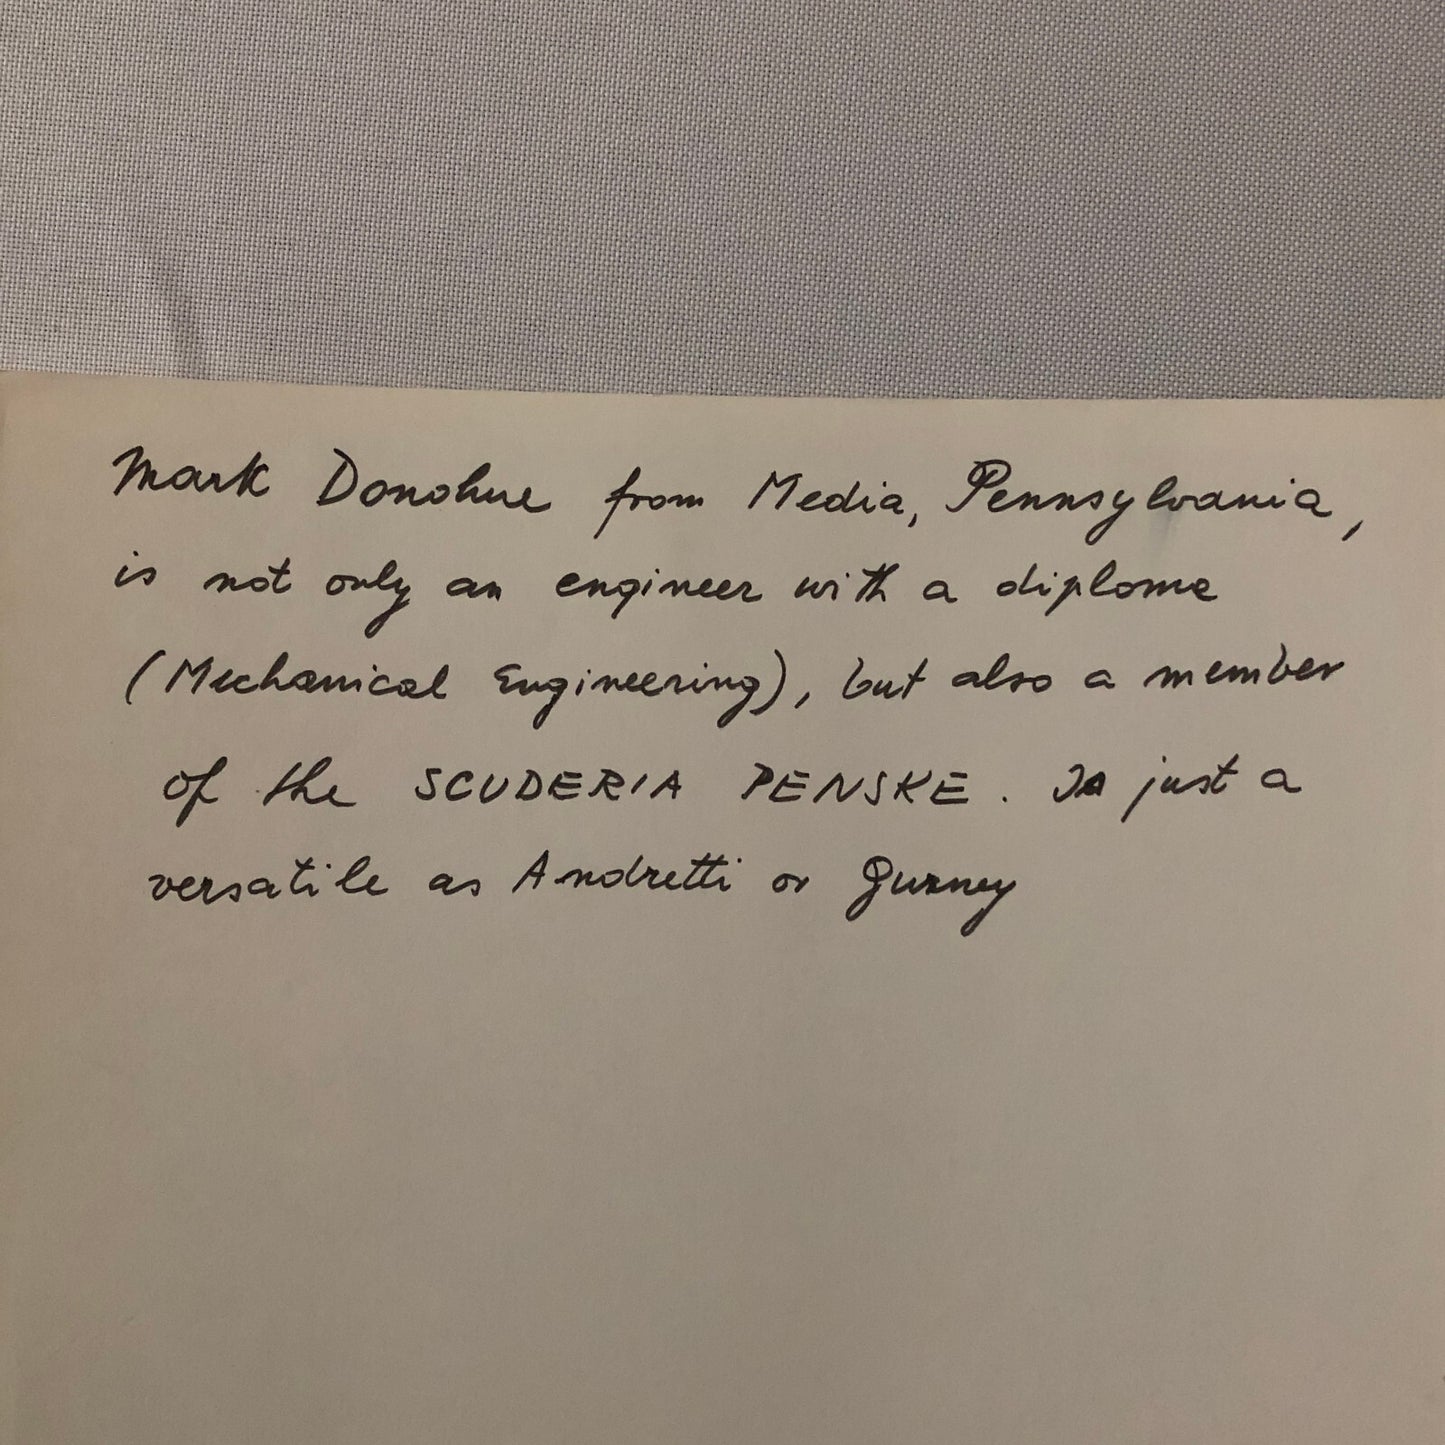 Mark Donohue from Media, Pennsylvania,
is not only an engineer with a diplome
(Mechanical Engineering), but also a member
of the SCUDERIA PENSKE. Is just a
versatile as Andretti or Gurney